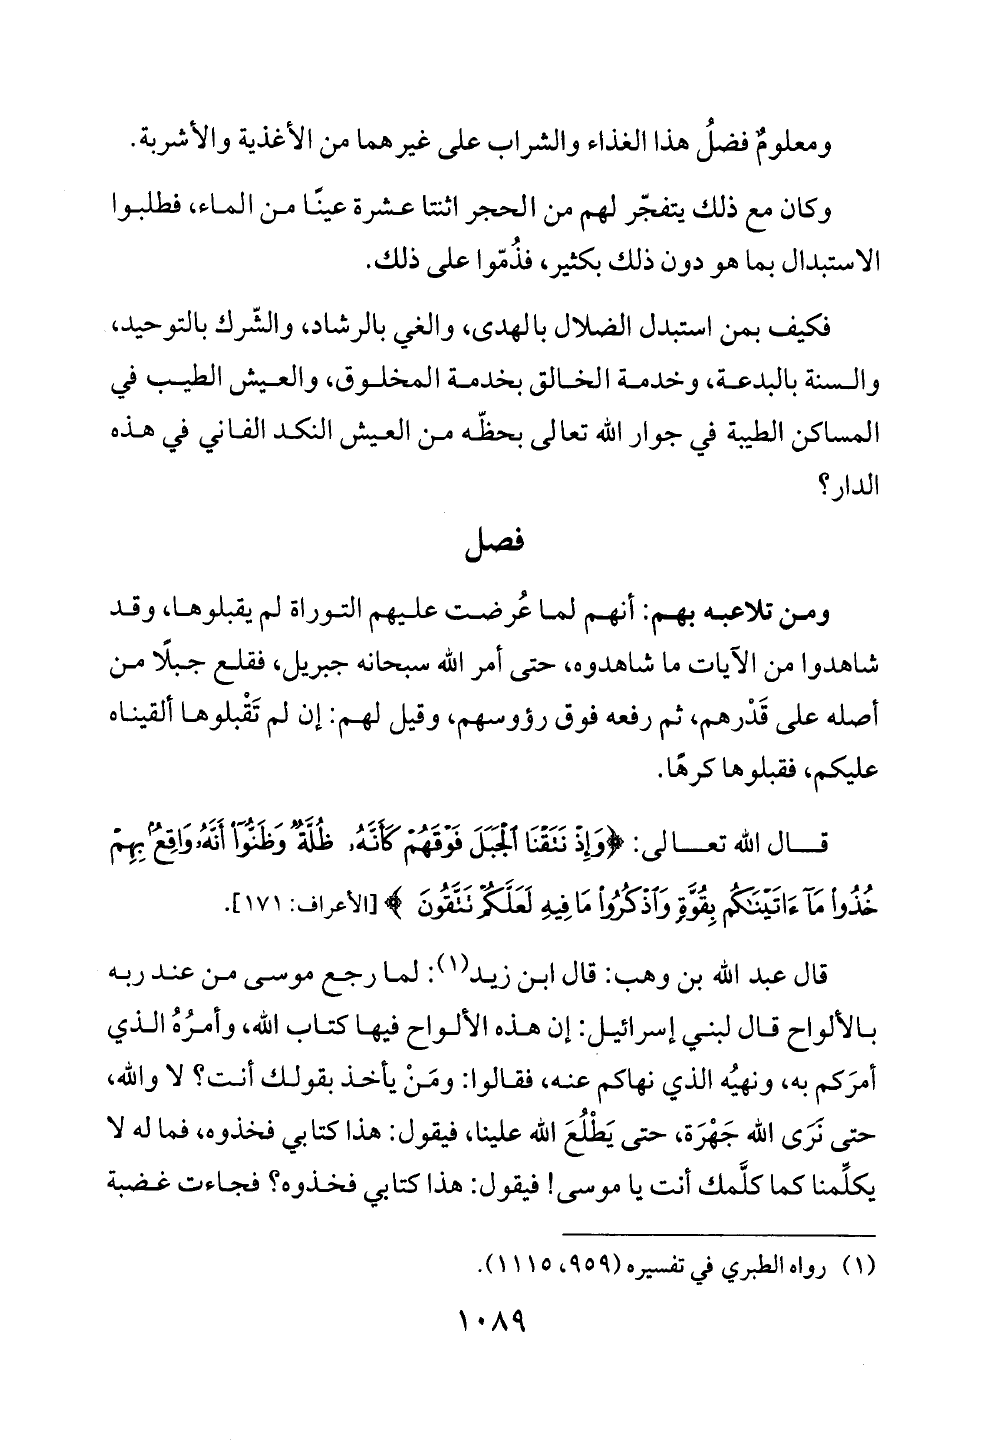 ومعلومٌ فضلُ هذا الغذاء والشراب على غيرهما من الأغذية والأشربة.
وكان مع ذلك يتفجّر لهم من الحجر اثنتا عشرة عينًا من الماء، فطلبوا
الاستبدال بما هو دون ذلك بكثير، فذُمّوا على ذلك.
فكيف بمن استبدل الضلال بالهدى، والغي بالرشاد، والشّرك بالتوحيد،
والسنة بالبدعة، وخدمة الخالق بخدمة المخلوق، والعيش الطيب في
المساكن الطيبة في جوار الله تعالى بحظّه من العيش النكد الفاني في هذه
الدار؟
فصل
ومن تلاعبه بهم: أنهم لما عُرضت عليهم التوراة لم يقبلوها، وقد
شاهدوا من الآيات ما شاهدوه، حتى أمر الله سبحانه جبريل، فقلع جبلًا من
أصله على قَدْرهم، ثم رفعه فوق رؤوسهم، وقيل لهم: إن لم تَقْبلوها ألقيناه
عليكم، فقبلوها كرهًا.
قال الله تعالى: ﴿وَإِذْ نَتَقْنَا الْجَبَلَ فَوْقَهُمْ كَأَنَّهُۥ ظُلَّةٌ وَظَنُّوٓا۟ أَنَّهُۥ وَاقِعٌۢ بِهِمْ
خُذُوا۟ مَآ ءَاتَيْنَٰكُم بِقُوَّةٍ وَٱذْكُرُوا۟ مَا فِيهِ لَعَلَّكُمْ تَتَّقُونَ ﴾ [الأعراف: ١٧١].
قال عبد الله بن وهب: قال ابن زيد(١): لما رجع موسى من عند ربه
بالألواح قال لبني إسرائيل: إن هذه الألواح فيها كتاب الله، وأمرُهُ الذي
أمرَكم به، ونهيُه الذي نهاكم عنه، فقالوا: ومَنْ يأخذ بقولك أنت؟ لا والله،
حتى نَرَى الله جَهْرَة، حتى يَطْلُعَ الله علينا، فيقول: هذا كتابي فخذوه، فما له لا
يكلِّمنا كما كلَّمك أنت يا موسى! فيقول: هذا كتابي فخذوه؟ فجاءت غضبة
(١) رواه الطبري في تفسيره (٩٥٩، ١١١٥).
١٠٨٩